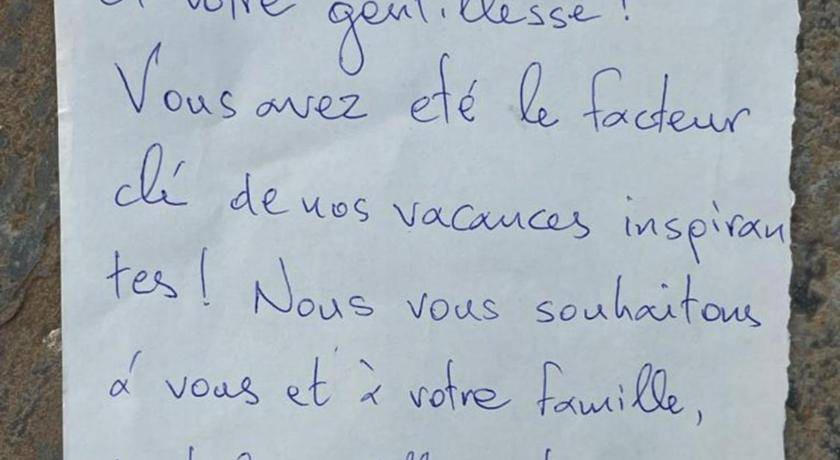 et votre gentillesse !
Vous avez eté le facteur
clé de nos vacances inspiran
tes ! Nous vous souhaitons
á vous et à votre famille,